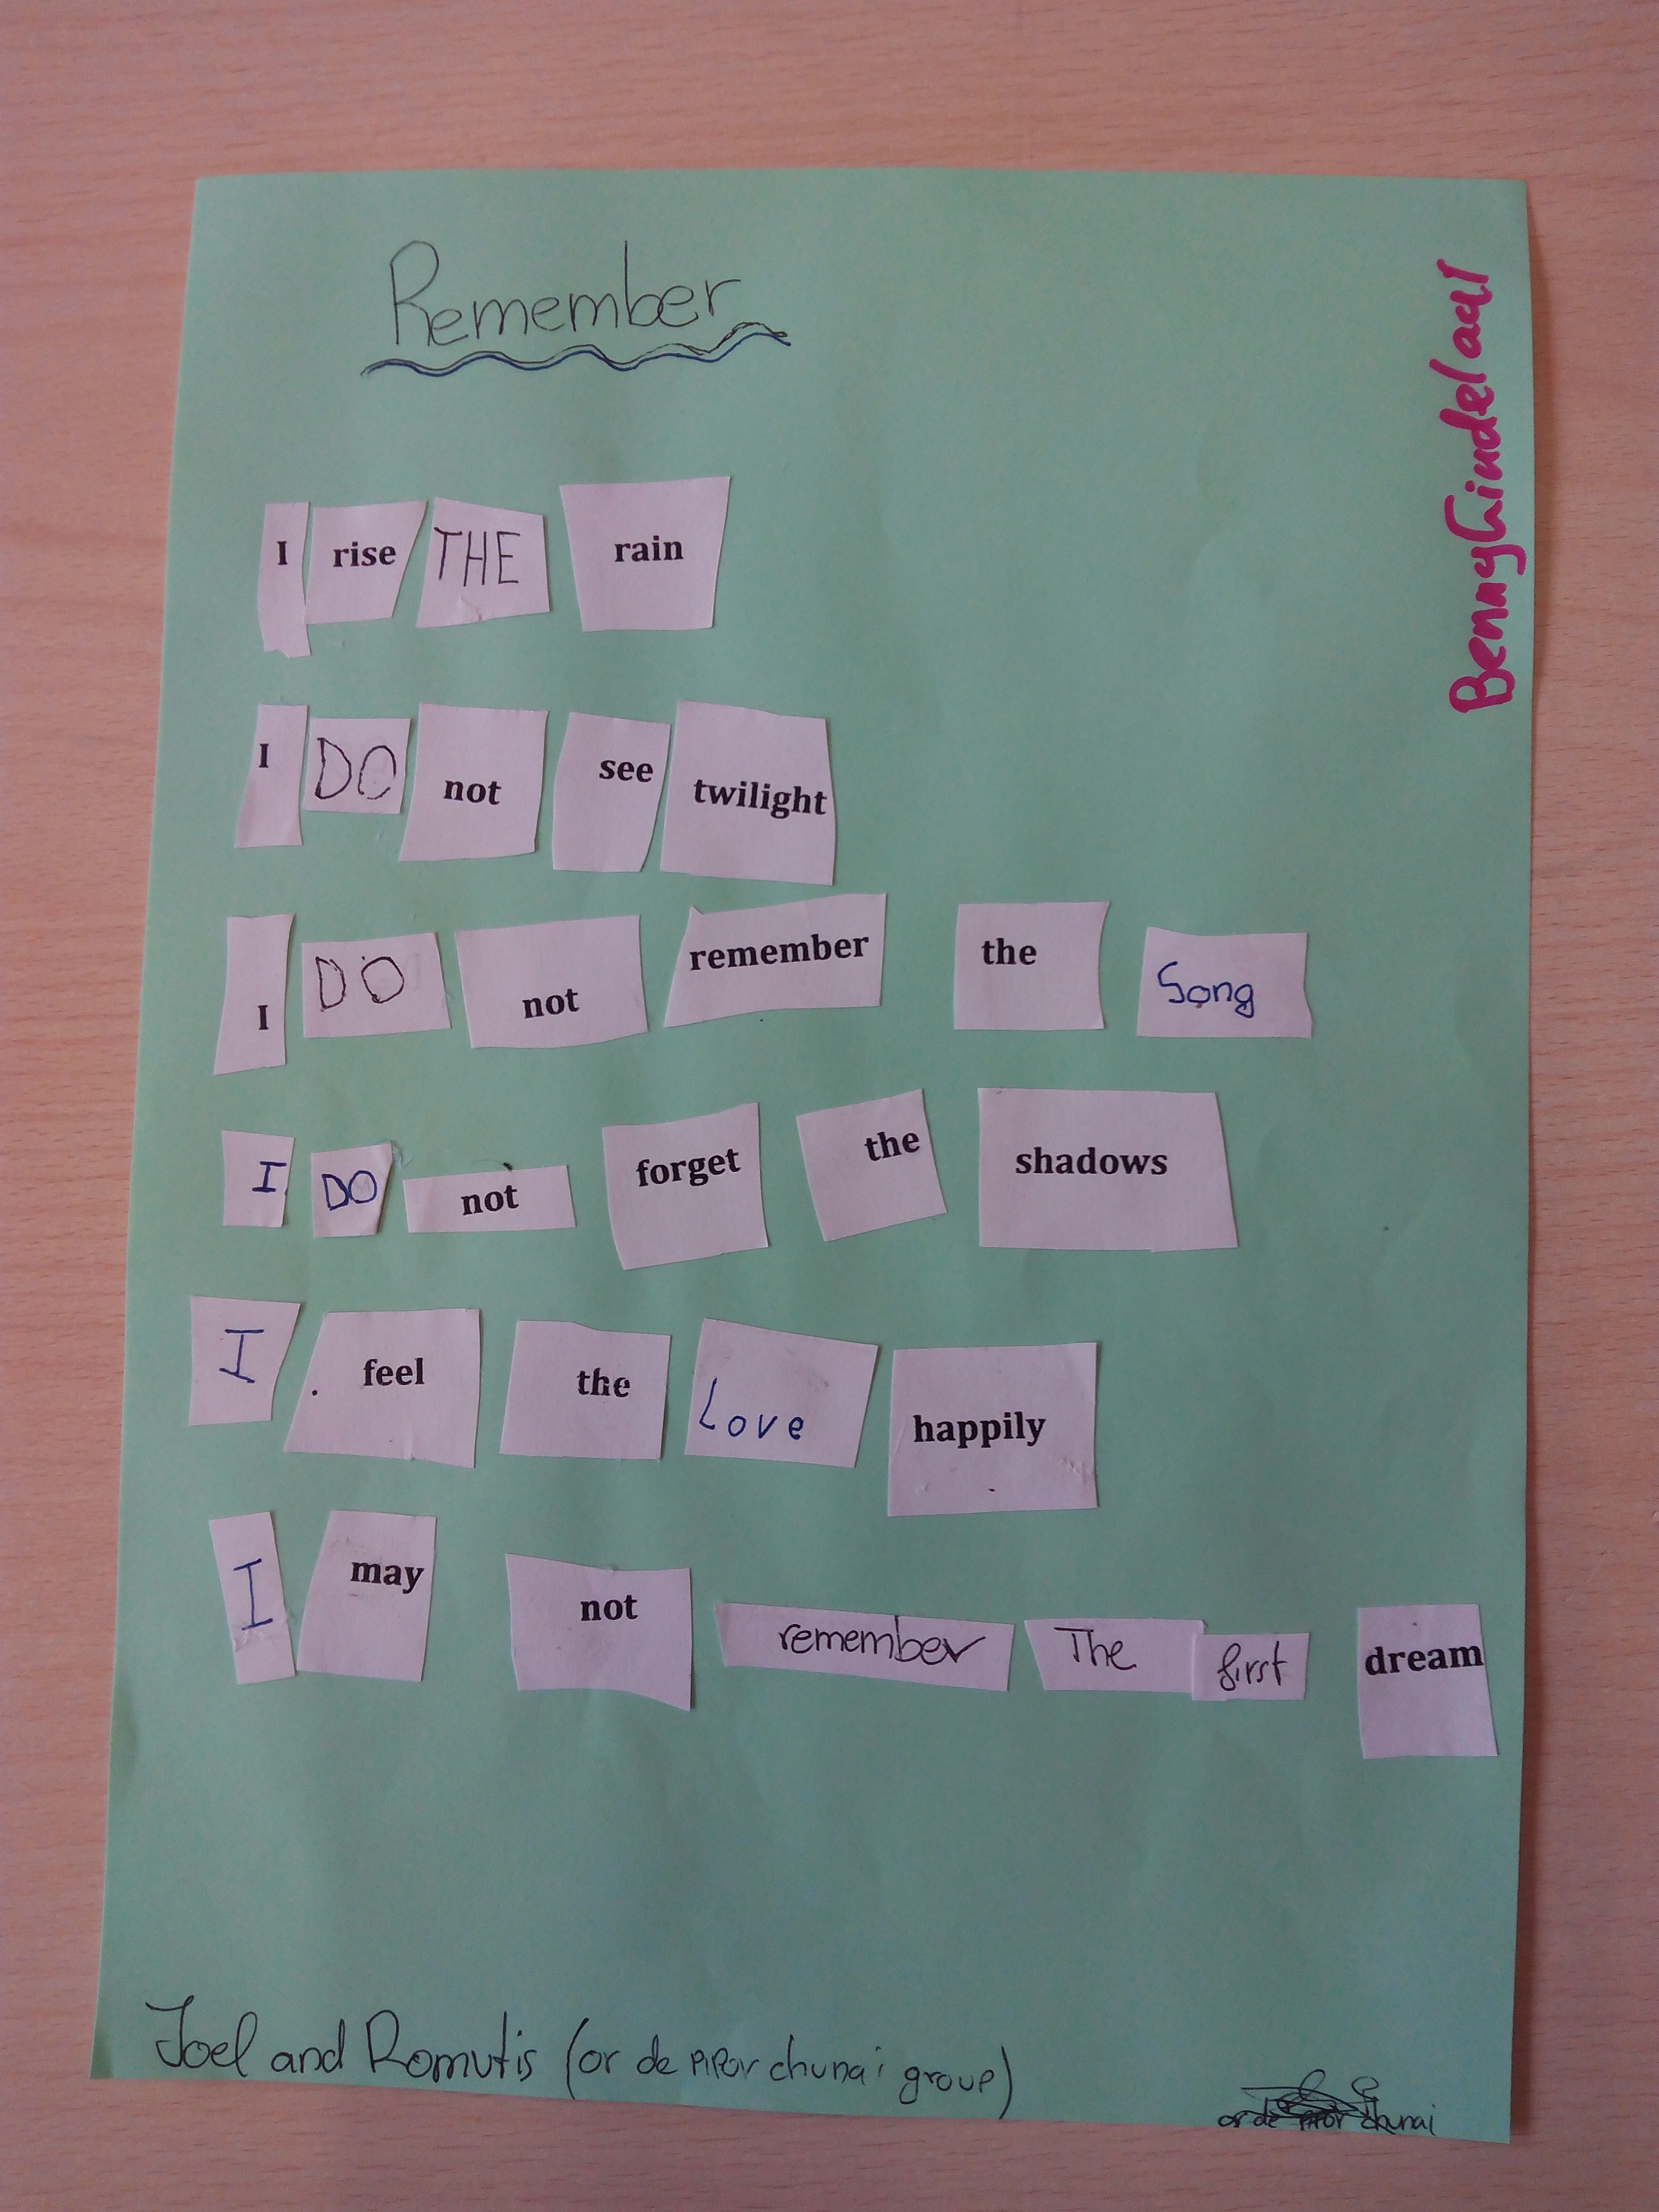 Remember
I rise THE rain
I DO not see twilight
I DO not remember the Song
I DO not forget the shadows
I feel the Love happily
I may not remember The first dream
Joel and Romutis (or de chunai group)
or de chunai